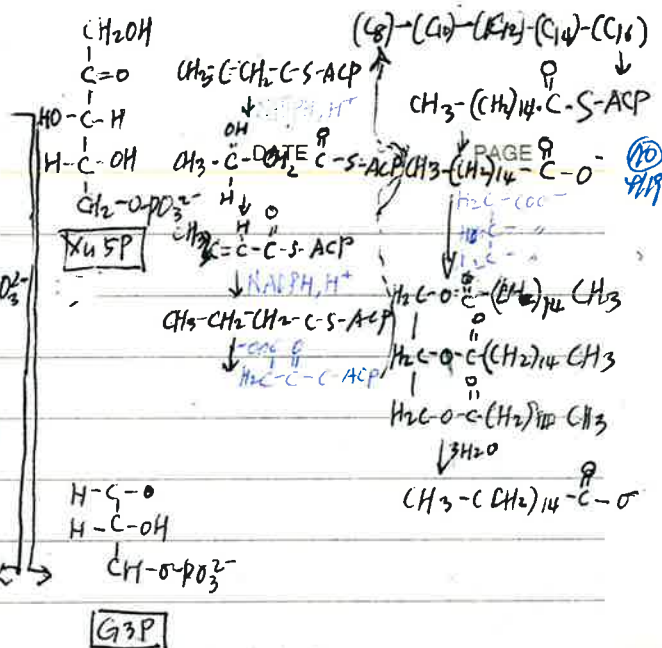 CH2OH
C=O
HO-C-H
H-C-OH
CH2-O-PO3 2-
Xu5P
O3 2-
H-C-O
H-C-OH
CH-O-PO3 2-
G3P
CH3-C-CH2-C-S-ACP
NADPH, H+
OH
O
CH3-C-CH2-C-S-ACP
H
DATE
H O
CH3 C=C-C-S-ACP
NADPH, H+
CH3-CH2-CH2-C-S-ACP
-OOC O
H2C-C-C-ACP
(C8)-(C10)-(C12)-(C14)-(C16)
O
CH3-(CH2)14-C-S-ACP
PAGE
O
CH3-(CH2)14-C-O-
H2C-COO-
H2C-O-C-(CH2)14 CH3
O
H2C-O-C(CH2)14 CH3
O
H2C-O-C-(CH2) CH3
3H2O
O
CH3-C(CH2)14-C-O